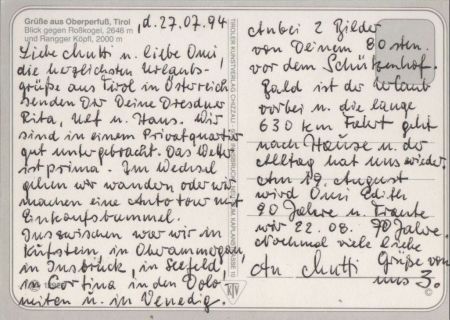 Grüße aus Oberperfuß, Tirol
Blick gegen Roßkogel, 2646 m
und Rangger Köpfl, 2000 m
, d. 27.07.94
Liebe Mutti u. liebe Omi,
die herzlichsten Urlaubs-
grüße aus Tirol in Österreich
senden Dir Deine Dresdner
Rita, Ulf u. Hans. Wir
sind in einem Privatquartier
gut untergebracht. Das Wetter
ist prima. Im Wechsel
gehen wir wandern oder wir
machen eine Autotour mit
Einkaufsbummel.
Inzwischen war wir in
Kufstein, in Oberammergau,
in Insbrück, in Seefeld,
in Cortina in den Dolo-
miten u. in Venedig.
TIROLER KUNSTVERLAG CHIZZALI
INNSBRUCK
KAPLAN
GASSE 10
KTV
©
Anbei 2 Bilder
von Deinem 80sten
vor dem Schützenhof.
Bald ist der Urlaub
vorbei u. die lange
630 km Fahrt geht
nach Hause u. der
Alltag hat uns wieder.
Am 19. August
wird Omi Edith
90 Jahre u. Traute
wir 22.08. 70 Jahre.
Nochmal viele liebe
Grüße von
An Mutti
uns 3.